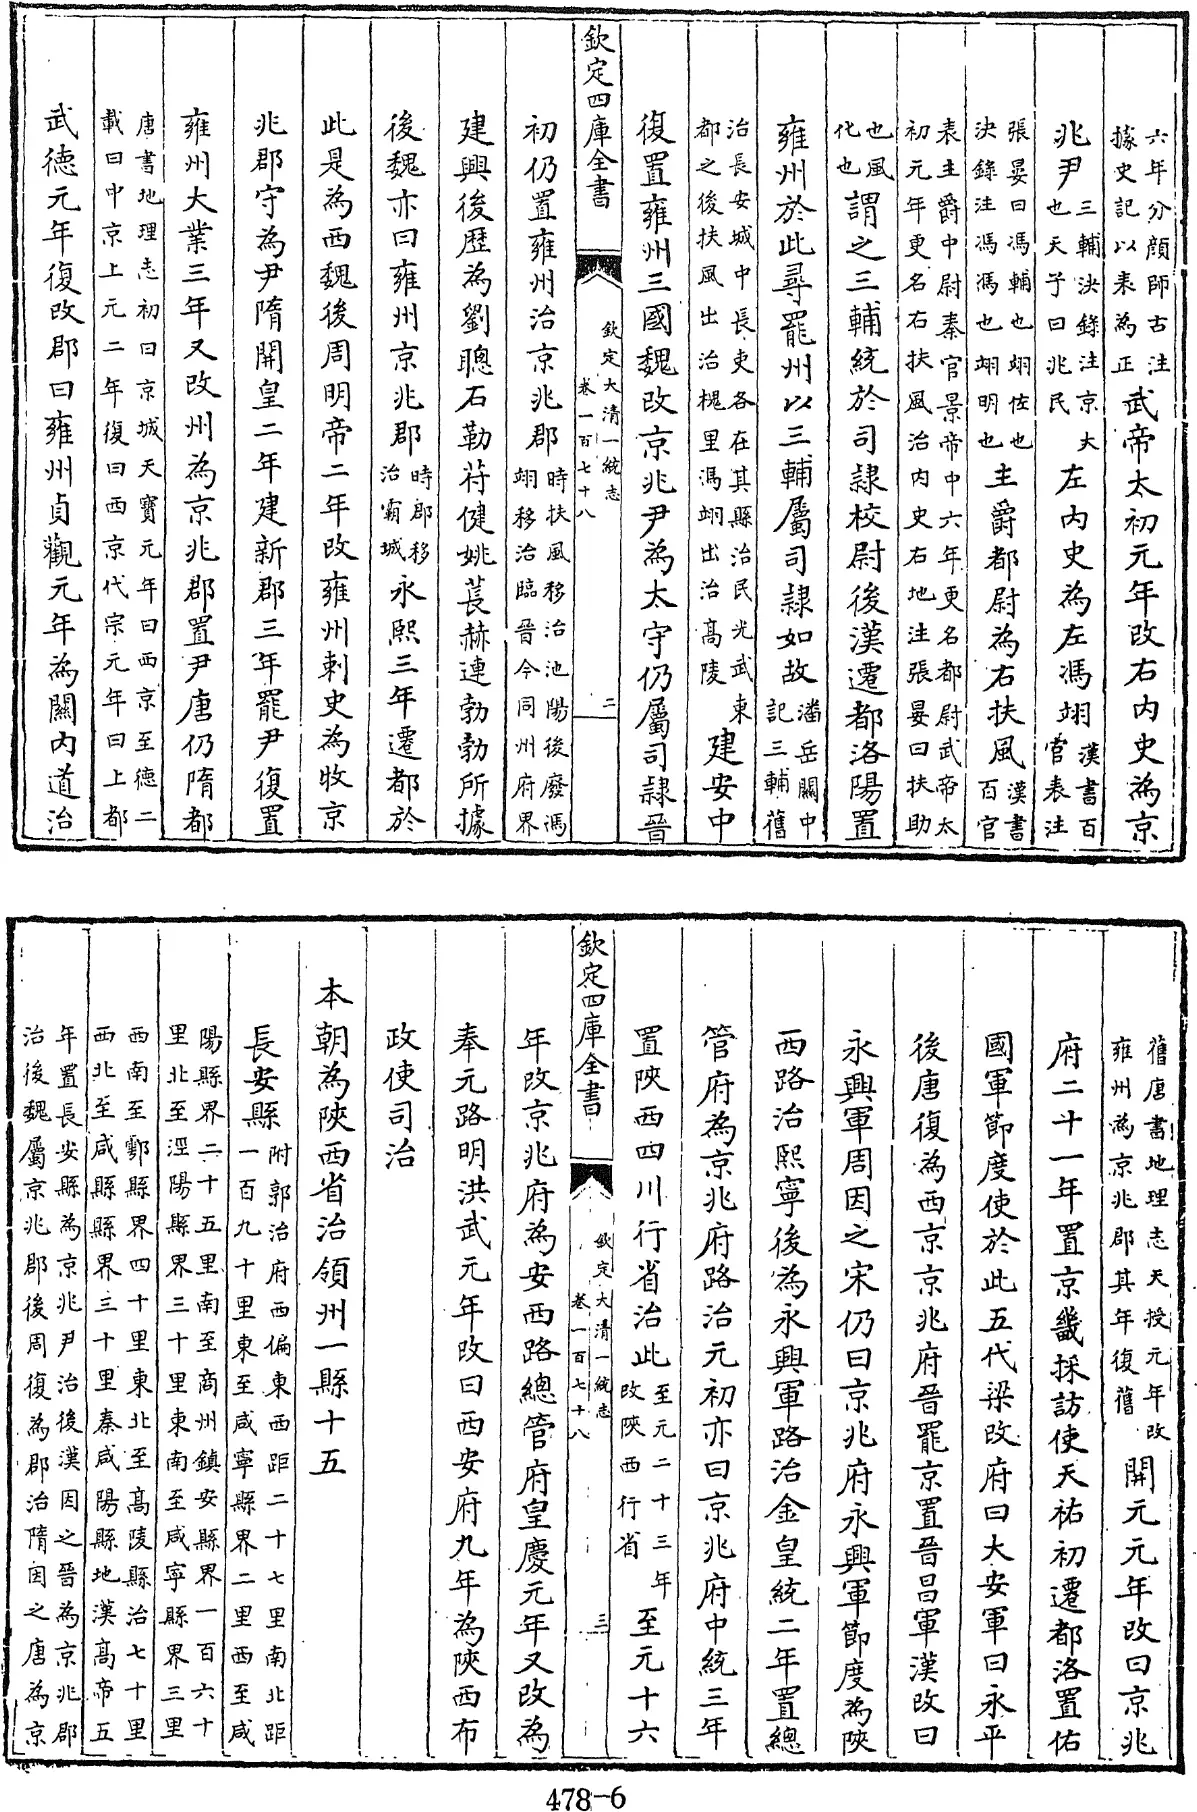 六年分顔師古注據史記以表為正武帝太初元年改右内史為京
兆尹三輔決錄注京大也天子曰兆民左内史為左馮翊漢書百官表注
張晏曰馮輔也翊佐也決錄注馮馮也翊明也主爵都尉為右扶風漢書百官
表主爵中尉秦官景帝中六年更名都尉武帝太初元年更名右扶風治内史右地注張晏曰扶助
也風化也謂之三輔統於司隷校尉後漢遷都洛陽置
雍州於此尋罷州以三輔屬司隷如故潘岳關中記三輔舊
治長安城中長吏各在其縣治民光武東都之後扶風出治槐里馮翊出治高陵建安中
復置雍州三國魏改京兆尹為太守仍屬司隷晉
欽定四庫全書
欽定大清一統志
卷一百七十八
二
初仍置雍州治京兆郡時扶風移治池陽後廢馮翊移治臨晉今同州府界
建興後歷為劉聰石勒苻健姚萇赫連勃勃所據
後魏亦曰雍州京兆郡時郡移治霸城永熙三年遷都於
此是為西魏後周明帝二年改雍州刺史為牧京
兆郡守為尹隋開皇二年建新郡三年罷尹復置
雍州大業三年又改州為京兆郡置尹唐仍隋都
唐書地理志初曰京城天寶元年曰西京至德二載曰中京上元二年復曰西京代宗元年曰上都
武德元年復改郡曰雍州貞觀元年為關内道治
舊唐書地理志天授元年改雍州為京兆郡其年復舊開元元年改曰京兆
府二十一年置京畿採訪使天祐初遷都洛置佑
國軍節度使於此五代梁改府曰大安軍曰永平
後唐復為西京京兆府晉罷京置晉昌軍漢改曰
永興軍周因之宋仍曰京兆府永興軍節度為陜
西路治熙寧後為永興軍路治金皇統二年置總
管府為京兆府路治元初亦曰京兆府中統三年
置陜西四川行省治此至元二十三年改陜西行省至元十六
欽定四庫全書
欽定大清一統志
卷一百七十八
三
年改京兆府為安西路總管府皇慶元年又改為
奉元路明洪武元年改曰西安府九年為陜西布
政使司治
本朝為陜西省治領州一縣十五
長安縣附郭治府西偏東西距二十七里南北距一百九十里東至咸寧縣界二里西至咸
陽縣界二十五里南至商州鎮安縣界一百六十里北至涇陽縣界三十里東南至咸寧縣界三里
西南至鄠縣界四十里東北至高陵縣治七十里西北至咸縣縣界三十里秦咸陽縣地漢高帝五
年置長安縣為京兆尹治後漢因之晉為京兆郡治後魏屬京兆郡後周復為郡治隋因之唐為京
478-6